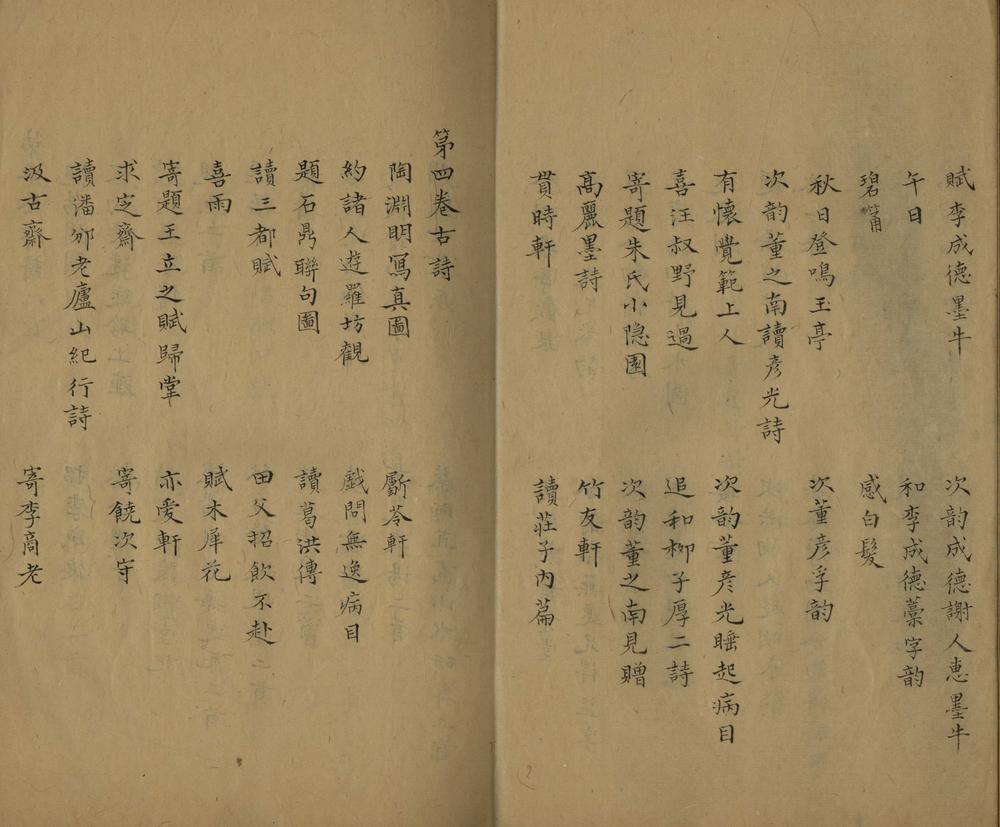 賦李成德墨牛　次韵成德謝人惠墨牛
午日　和李成德藁字韵
碧筩　感白髮
秋日登鳴玉亭　次董彥孚韵
次韵董之南讀彥光詩
有懷覺範上人　次韵董彥光睡起病目
喜汪叔野見過　追和柳子厚二詩
寄題朱氏小隐園　次韵董之南見贈
髙麗墨詩　竹友軒
貫時軒　讀莊子內篇
第四卷古詩
陶淵明寫真圖　斸苓軒
約諸人遊羅坊觀　戲問無逸病目
題石鼎聯句圖　讀葛洪傳
讀三都賦　田父招飲不赴
喜雨　賦木犀花
寄題王立之賦歸堂　亦愛軒
求定齋　寄饒次守
讀潘邠老廬山紀行詩
汲古齋　寄李商老